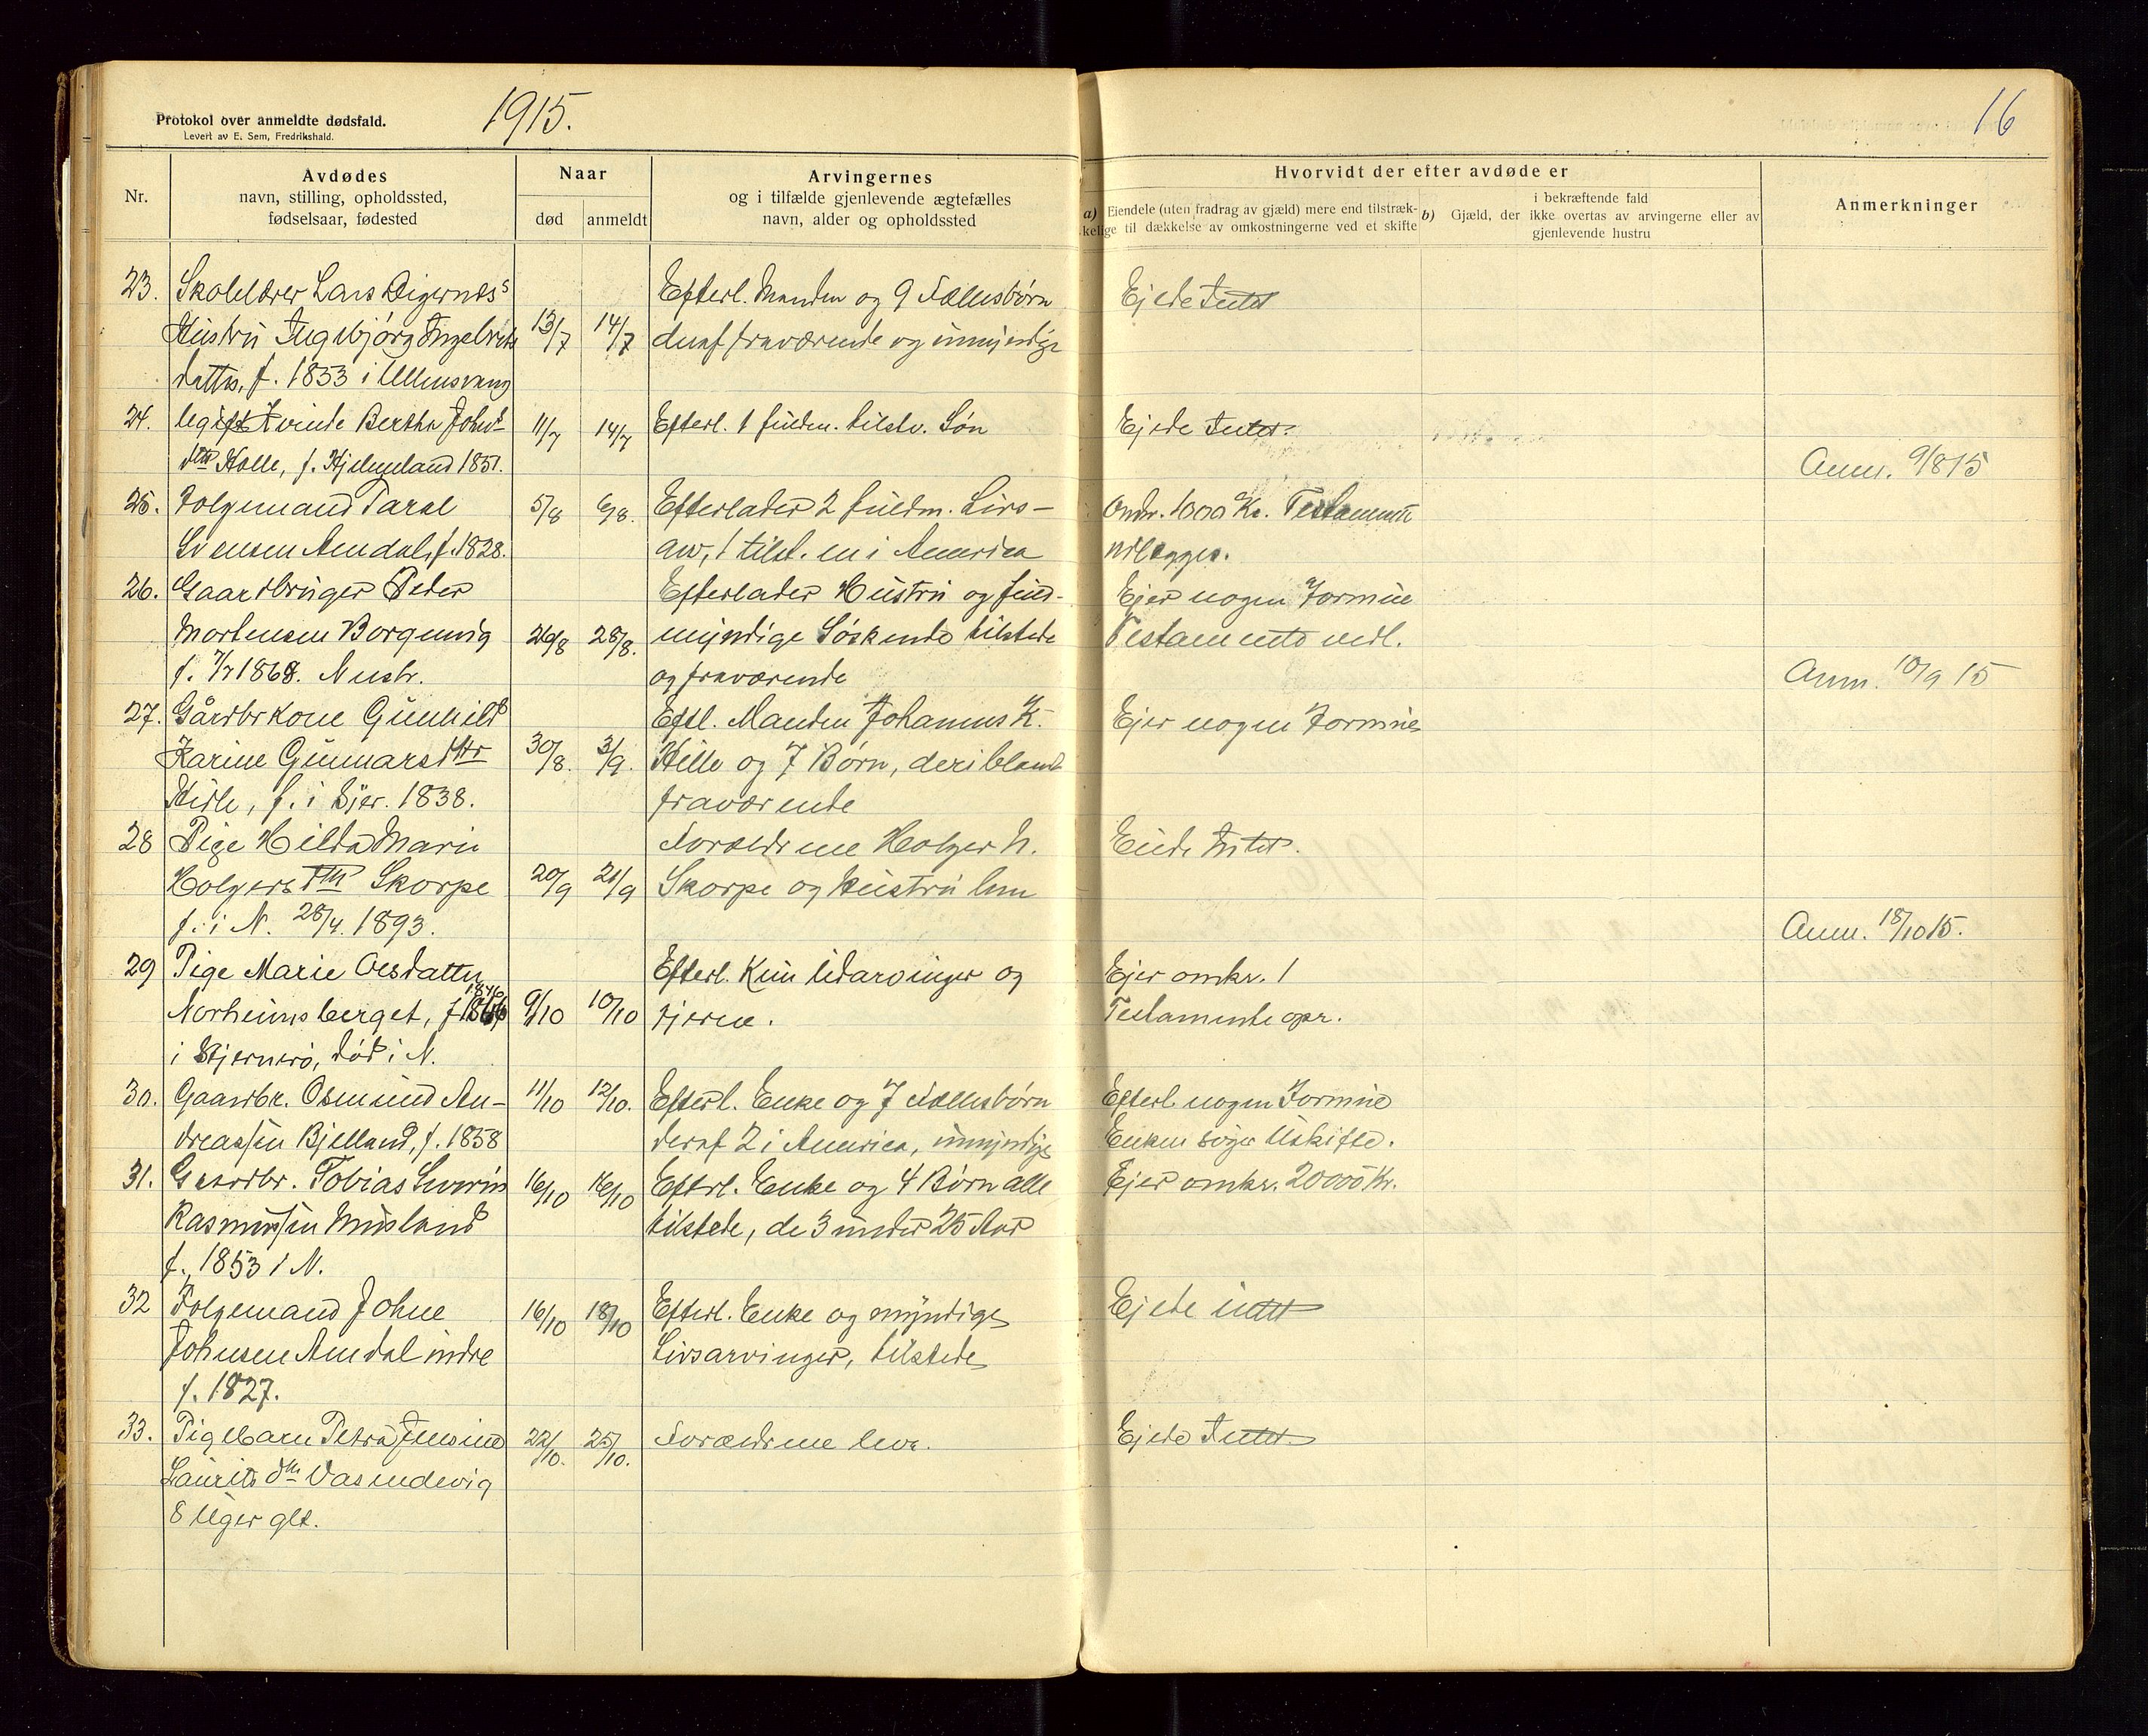 Protokol over anmeldte dødsfald.
Levert av E. Sem, Fredrikshald.
1915.
16
Nr.
Avdødes
navn, stilling, opholdssted,
fødselsaar, fødested
Naar
død
anmeldt
Arvingernes
og i tilfælde gjenlevende ægtefælles
navn, alder og opholdssted
Hvorvidt der efter avdøde er
a) Eiendele (uten fradrag av gjæld) mere end tilstræk-
kelige til dækkelse av omkostningerne ved et skifte
b) Gjæld, der
i bekræftende fald
ikke overtas av arvingerne eller av
gjenlevende hustru
Anmerkninger
23. Skolelærer Lars Digernæs's Efterl. Manden og 9 Fællesbørn Ejede Intet
Hustru Ingebjørg 13/7 14/7 deraf fraværende og umyndige
datter, f. 1853 i Ullensvang
24. Kvinde Bertha Johns- 11/7 14/7 Efterl. 1 fuldm. tilstv. Søn Ejede Intet.
dtr Holle, f. Hjelmeland 1851. Anm. 9/8 15
25. Folgemand Taral 5/8 6/8. Efterlader 2 fuldm. Livs- Omkr. 1000 Kr. Testamente
Svensen Amdal, f. 1828. arv, 1 tilst. en i America vedlægges.
26. Gaardbruger Peder Efterlader Hustru og fuld- Ejer nogen Formue
Mortensen Borgenvig 26/8 28/8. myndige Søskende tilstede Testamente vedl.
f. 7/7 1868. Nestr. og fraværende Anm. 10/9 15
27. Gårdbrkone Gunhild Eftl. Manden Johannes K. Ejer nogen Formue
Karine Gunnarsdtr 30/8. 3/9. Hille og 7 Børn, deriblandt
f. i Sjer. 1838. fraværende
28 Pige Hilda Marie Forældrene Holger N. Eiede Intet.
Holgersdtr Skorpe 20/9 21/9 Skorpe og Hustru
f. i N. 28/4. 1893. Anm. 18/10 15.
29 Pige Marie Olsdatter Efterl. Kun Udarvinger og Ejer omkr. 1
1846
Norheimsberget, f 9/10 10/10 fjerne. Testamente opr.
i Sjernerø, død i N.
30. Gaardbr. Osmund An- 11/10 12/10. Efterl. Enke og 7 Fællesbørn Efterl nogen Formue
dreassen Bjelland, f. 1858 deraf 2 i America, umyndige Enken søger Uskifte.
31. Gaardbr. Tobias Severin 16/10 16/10 Efterl. Enke og 4 Børn alle Ejer omkr. 20000 Kr.
Rasmussen Musland tilstede, de 3 under 25 Aar
f. 1853 i N.
32 Folgemand Johne 16/10 18/10 Efterl. Enke og myndige Ejede intet
Johnsen Amdal indre Livsarvinger, tilstede
f. 1827.
33. Pigebarn Petra Jensine 22/10. 25/10. Forældrene leve. Ejede Intet
Laurits dtr Vasendevig
8 Uger glt.